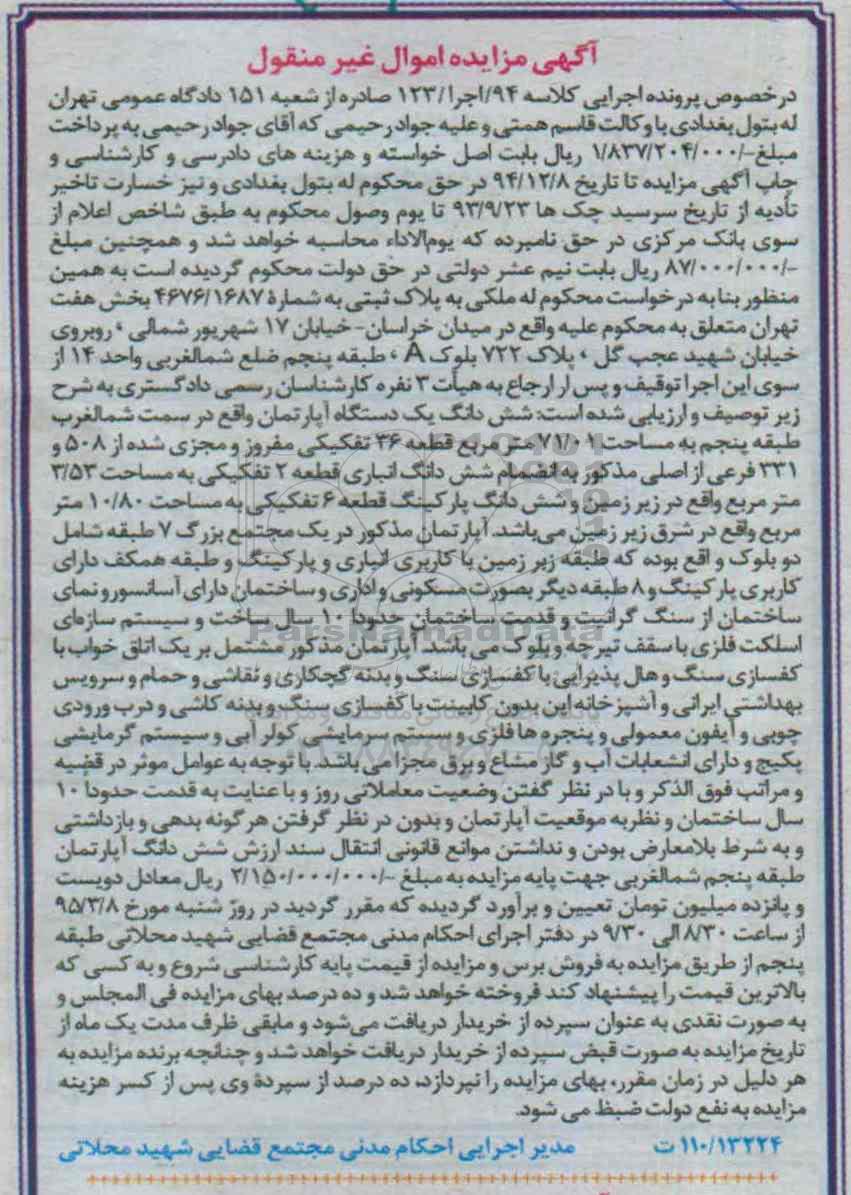 آگهی مزایده اموال غیر منقول
در خصوص پرونده اجرایی کلاسه ۹۴/اجرا/۱۲۳ صادره از شعبه ۱۵۱ دادگاه عمومی تهران
له بتول بغدادی با وکالت قاسم همتی و علیه جواد رحیمی که آقای جواد رحیمی به پرداخت
مبلغ-/۱/۸۳۷/۲۰۴/۰۰۰ ریال بابت اصل خواسته و هزینه های دادرسی و کارشناسی و
چاپ آگهی مزایده تا تاریخ ۹۴/۱۲/۸ در حق محکوم له بتول بغدادی و نیز خسارت تاخیر
تأدیه از تاریخ سرسید چک ها ۹۳/۹/۲۳ تا یوم وصول محکوم به طبق شاخص اعلام از
سوی بانک مرکزی در حق نامبرده که یوم‌الاداء محاسبه خواهد شد و همچنین مبلغ
-/۸۷/۰۰۰/۰۰۰ ریال بابت نیم عشر دولتی در حق دولت محکوم گردیده است به همین
منظور بنا به درخواست محکوم له ملکی به پلاک ثبتی به شمارۀ ۴۶۷۶/۱۶۸۷ بخش هفت
تهران متعلق به محکوم علیه واقع در میدان خراسان- خیابان ۱۷ شهریور شمالی ، روبروی
خیابان شهید عجب گل ، پلاک ۷۲۲ بلوک A ، طبقه پنجم ضلع شمالغربی واحد ۱۴ از
سوی این اجرا توقیف و پس از ارجاع به هیأت ۳ نفره کارشناسان رسمی دادگستری به شرح
زیر توصیف و ارزیابی شده است: شش دانگ یک دستگاه آپارتمان واقع در سمت شمالغرب
طبقه پنجم به مساحت ۷۱/۰۱ متر مربع قطعه ۳۶ تفکیکی مفروز و مجزی شده از ۵۰۸ و
۳۳۱ فرعی از اصلی مذکور به انضمام شش دانگ انباری قطعه ۲ تفکیکی به مساحت ۳/۵۳
متر مربع واقع در زیر زمین و شش دانگ پارکینگ قطعه ۶ تفکیکی به مساحت ۱۰/۸۰ متر
مربع واقع در شرق زیر زمین می‌باشد. آپارتمان مذکور در یک مجتمع بزرگ ۷ طبقه شامل
دو بلوک واقع بوده که طبقه زیر زمین با کاربری انباری و پارکینگ و طبقه همکف دارای
کاربری پارکینگ و ۸ طبقه دیگر بصورت مسکونی و اداری و ساختمان دارای آسانسور و نمای
ساختمان از سنگ گرانیت و قدمت ساختمان حدوداً ۱۰ سال ساخت و سیستم سازه‌ای
اسلکت فلزی با سقف تیرچه و بلوک می باشد. آپارتمان مذکور مشتمل بر یک اتاق خواب با
کفسازی سنگ و هال پذیرایی با کفسازی سنگ و بدنه گچکاری و نقاشی و حمام و سرویس
بهداشتی ایرانی و آشپزخانه این بدون کابینت با کفسازی سنگ و بدنه کاشی و درب ورودی
چوبی و آیفون معمولی و پنجره ها فلزی و سیستم سرمایشی کولر آبی و سیستم گرمایشی
پکیج و دارای انشعابات آب و گاز مشاع و برق مجزا می باشد. با توجه به عوامل موثر در قضیه
و مراتب فوق الذکر و با در نظر گفتن وضعیت معاملاتی روز و با عنایت به قدمت حدوداً ۱۰
سال ساختمان و نظر به موقعیت آپارتمان و بدون در نظر گرفتن هر گونه بدهی و بازداشتی
و به شرط بلامعارض بودن و نداشتن موانع قانونی انتقال سند ارزش شش دانگ آپارتمان
طبقه پنجم شمالغربی جهت پایه مزایده به مبلغ -/۲/۱۵۰/۰۰۰/۰۰۰ ریال معادل دویست
و پانزده میلیون تومان تعیین و برآورد گردیده که مقرر گردید در روز شنبه مورخ ۹۵/۳/۸
از ساعت ۸/۳۰ الی ۹/۳۰ در دفتر اجرای احکام مدنی مجتمع قضایی شهید محلاتی طبقه
پنجم از طریق مزایده به فروش برس و مزایده از قیمت پایه کارشناسی شروع و به کسی که
بالاترین قیمت را پیشنهاد کند فروخته خواهد شد و ده درصد بهای مزایده فی المجلس و
به صورت نقدی به عنوان سپرده از خریدار دریافت می‌شود و مابقی ظرف مدت یک ماه از
تاریخ مزایده به صورت قبض سپرده از خریدار دریافت خواهد شد و چنانچه برنده مزایده به
هر دلیل در زمان مقرر، بهای مزایده را نپردازد، ده درصد از سپردۀ وی پس از کسر هزینه
مزایده به نفع دولت ضبط می شود.
۱۱۰/۱۳۲۲۴ ت مدیر اجرایی احکام مدنی مجتمع قضایی شهید محلاتی
ParsNamadData